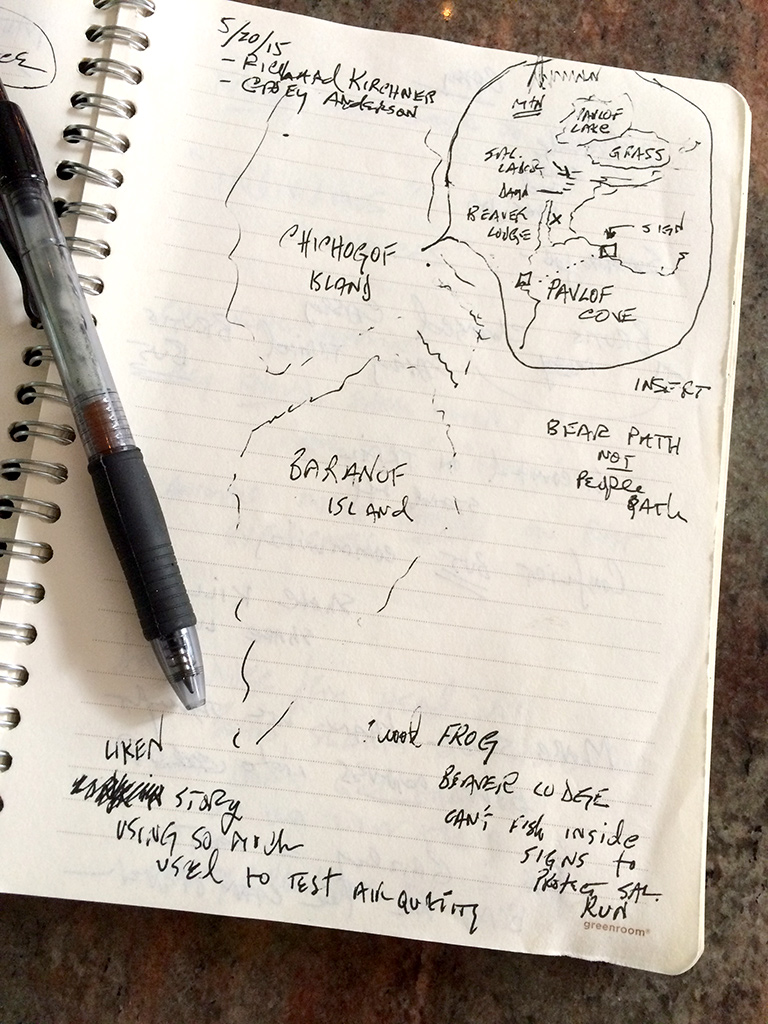 5/20/15
- RICHAARD KIRCHNER
- COREY ANDERSON
MTN
PAVLOF
LAKE
GRASS
SAL.
LADDER
DAMN
BEAVER
LODGE
SIGN
X
PAVLOF
COVE
INSERT
CHICHOGOF
ISLAND
BEAR PATH
NOT
PEOPLE
PATH
BARANOF
ISLAND
LIKEN
STORY
USING SO MUCH
USED TO TEST AIR QUALITY
WOOD FROG
BEAVER LODGE
CAN'T FISH INSIDE
SIGNS to
PROTECT SAL.
RUN
greenroom®